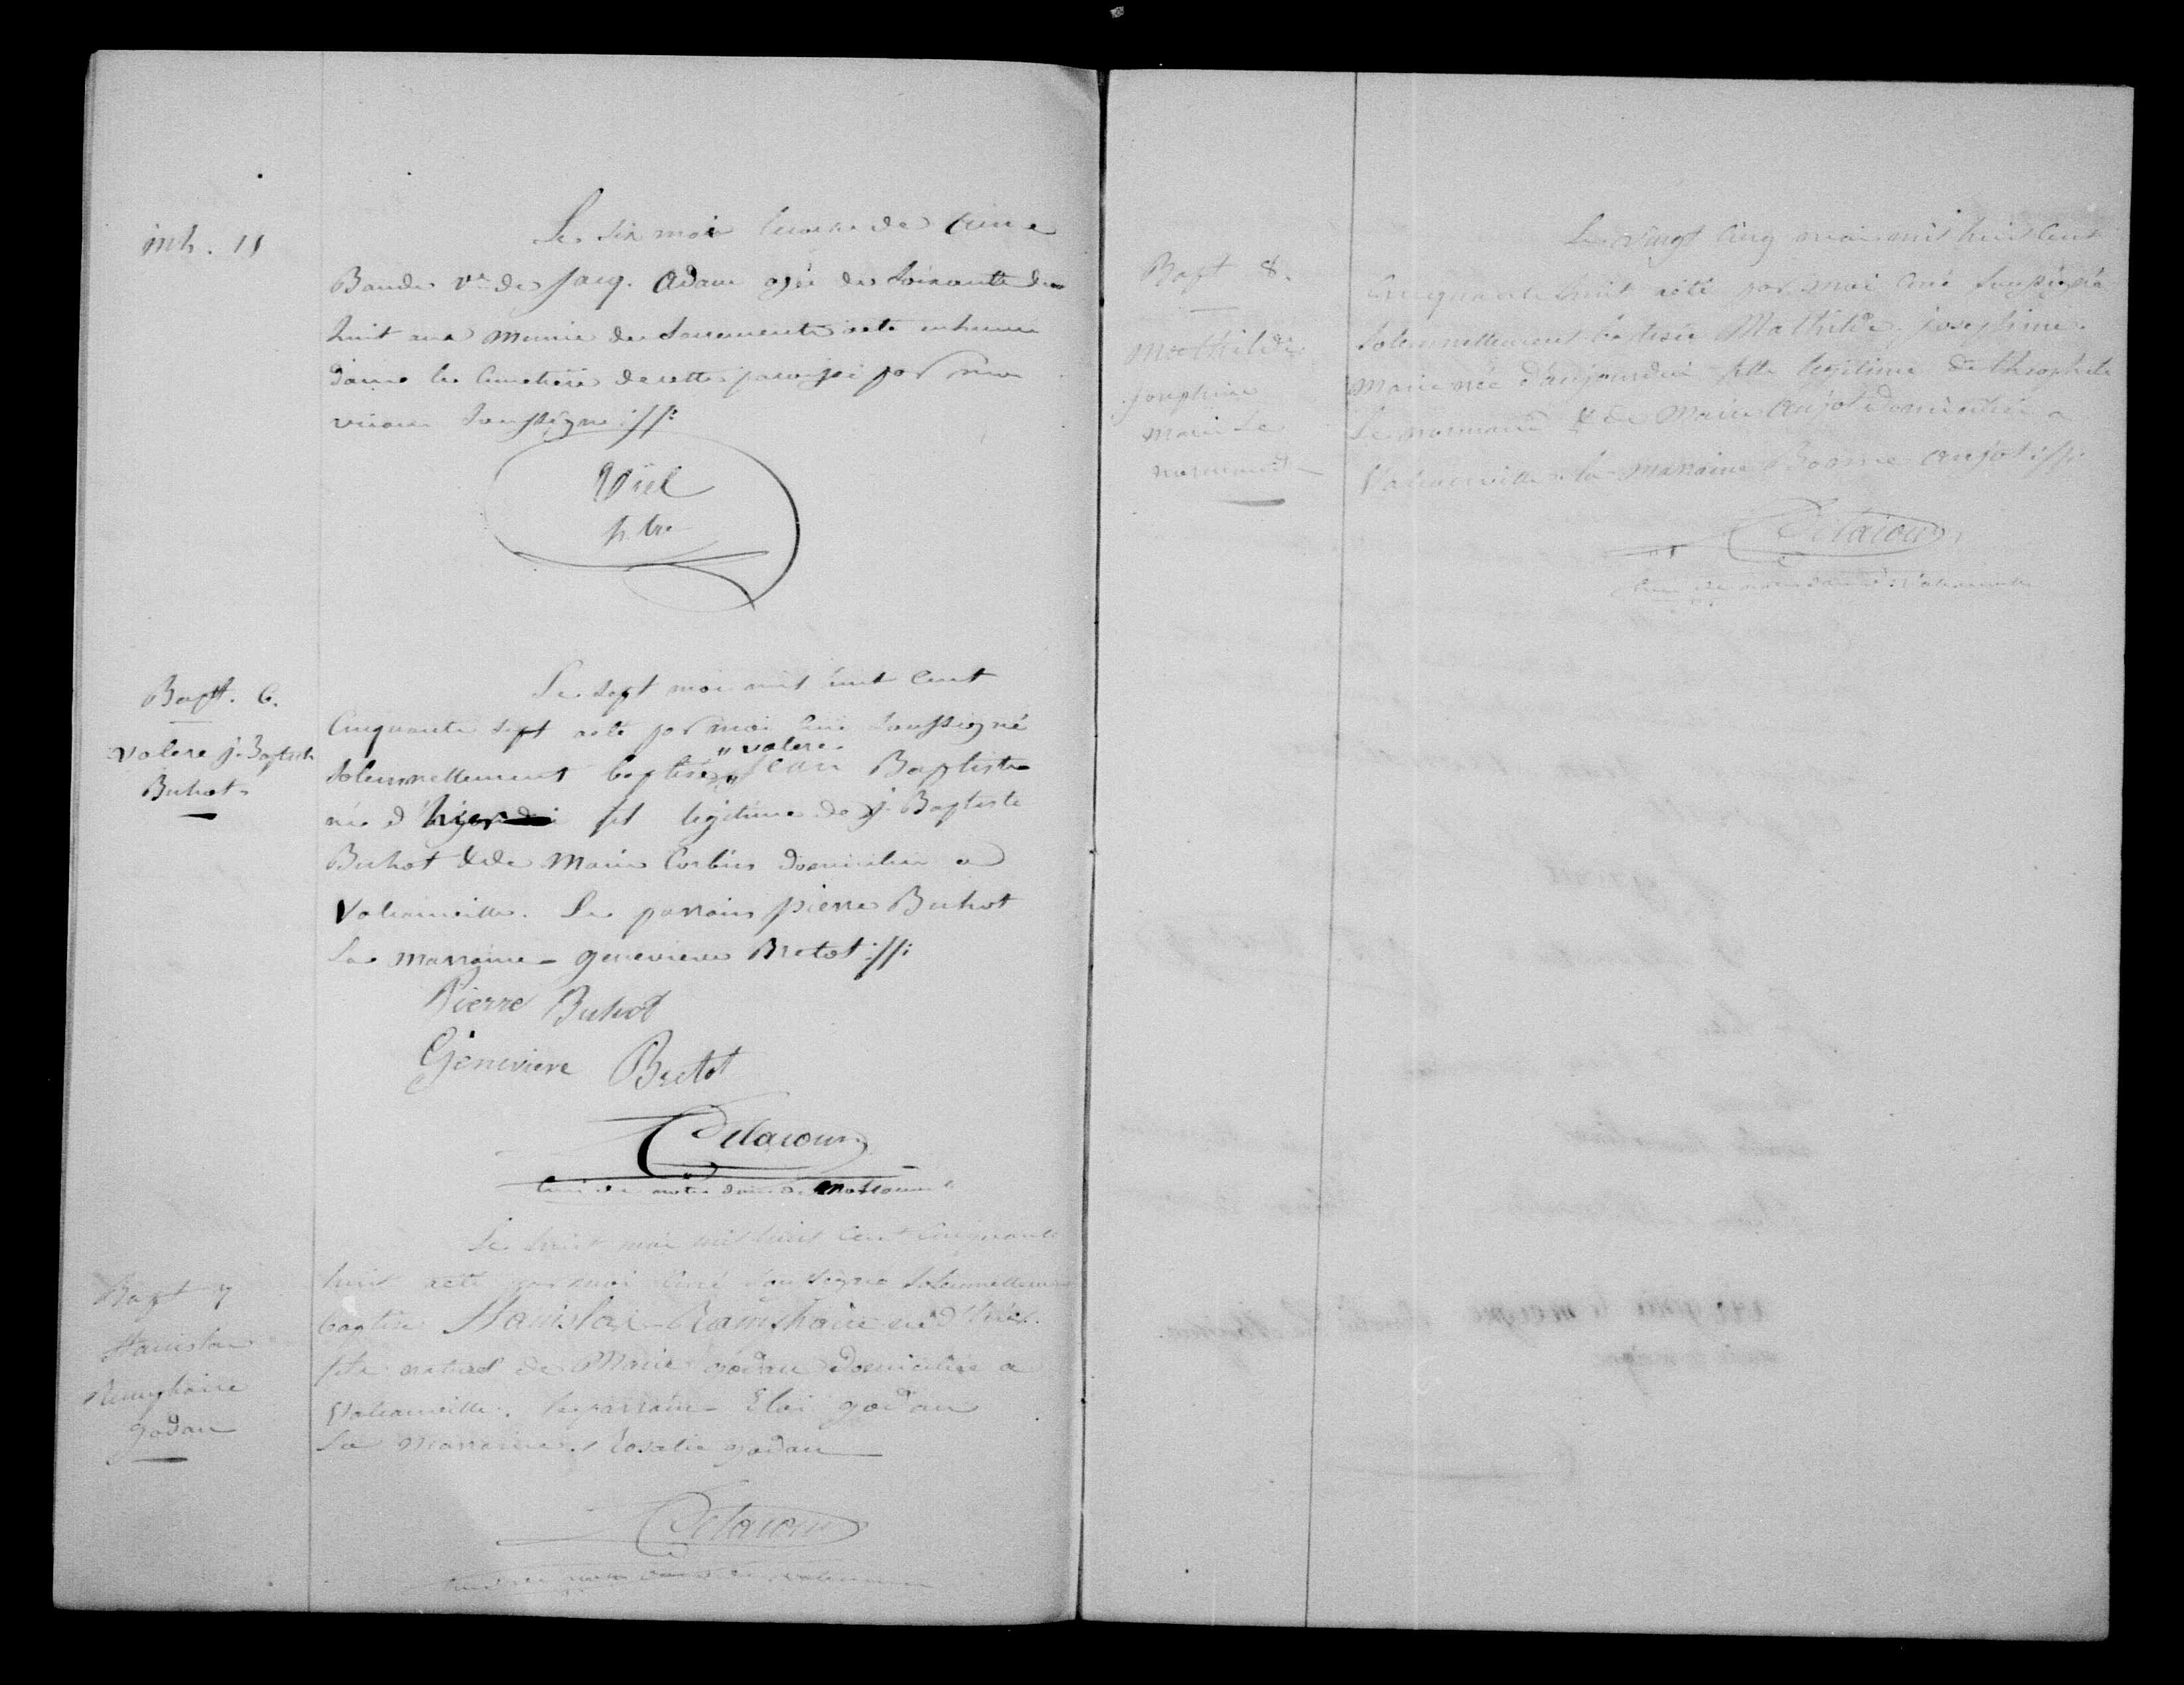 inh. 11
Le six mai le corps de
Baude Ve de Jacq. Adam agée de soixante dix
huit ans munie des sacrements acte inhumé
dans le cimetière de cette paroisse par mon
vicaire soussigné ://:
Viel
ptre
Bapt. 6.
Valere j. Baptiste
Buhot
Le sept mai mil huit cent
cinquante sept acte par moi curé soussigné
" valere
solennellement baptisé " Jean Baptiste
né d'hier fil légitime de j. Baptiste
Buhot & de Marie Corbin domicilié a
Valcanville. Le parrain pierre Buhot
La marraine - genevieve Bretot ://:
Pierre Buhot
Genevieve Bretot
Delacour
Curé de notre dame de
Bapt 7
Stanislas
godan
Le huit mai mil huit cent cinquante
huit acté par moi curé soussigné solennellement
baptisé Stanislas né d'hier
fils naturel de Marie godan domiciliée a
Valcanville. le parrain - Eloi godan
La marraine Rosalie godan
Delacour
Curé de notre dame de Valcanville
Bapt 8.
Mathilde
josephine
marie Le
normand
Le vingt cinq mai mil huit cent
cinquante huit acté par moi curé soussigné
solennellement baptisée Mathilde josephine
Marie née d'aujourdui fille légitime de théophile
Le normand & de Marie anjot domiciliée a
Valcanville. la marraine Bonne anjot ://:
Delacour
Curé de notre dame de Valcanville